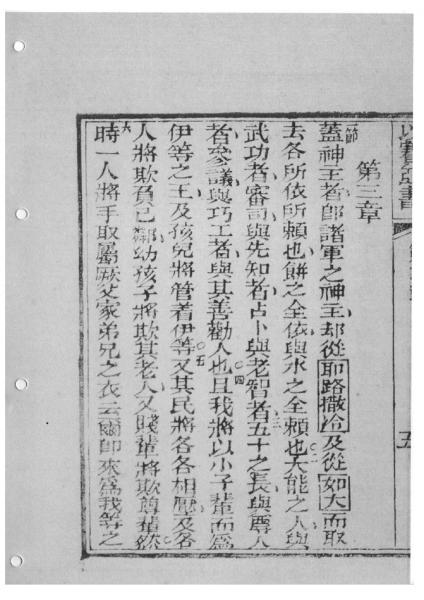 以賽亞書
五
第三章
一節
蓋神王者卽諸軍之神王却從耶路撒冷及從如大而取
去各所依所賴也餅之全依與水之全賴也大能之人與
武功者審司與先知者占卜與老智者五十之長與尊人
者參議與巧工者與其善勸人也且我將以小子輩而爲
伊等之王及孩兒將管着伊等又其民將各各相壓及各
人將欺負己鄰幼孩子將欺其老人又賤輩將欺尊輩然
時一人將手取屬厥父家弟兄之衣云爾卽來爲我等之